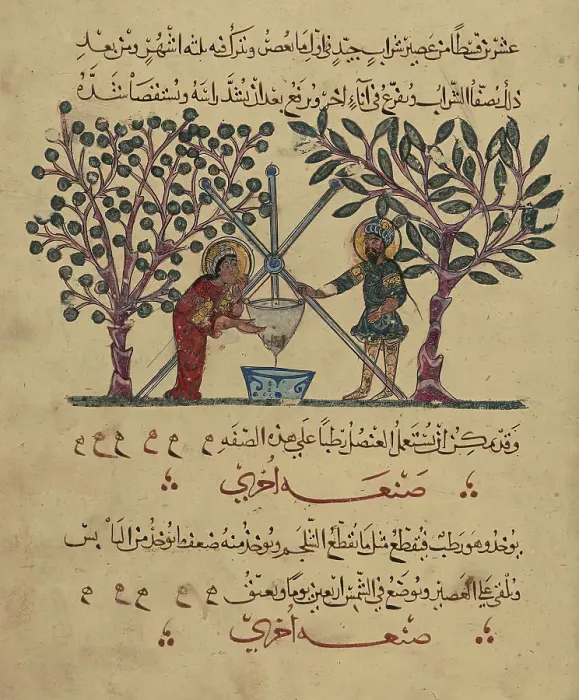 عشرين قسطًا من عصير شراب جيّد في اوّل ما يعصر ويترك فيه ثلثه اشهر ومن بعد
ذلك يصفّا الشراب ويفرّغ في اناءٍ اخر ويرفع بعد ان يشدّ راسه ويستقصا شدّه
وقد يمكن ان يستعمل العنصل رطبًا على هذه الصفه
صنعه اخري
يوخذ وهو رطب فيقطع مثل ما يقطع الشلجم ويوخذ منه ضعف ما يوخذ من اليابس
ويلقى على العصير ويوضع في الشمس اربعين يومًا ويعتق
صنعه اخري